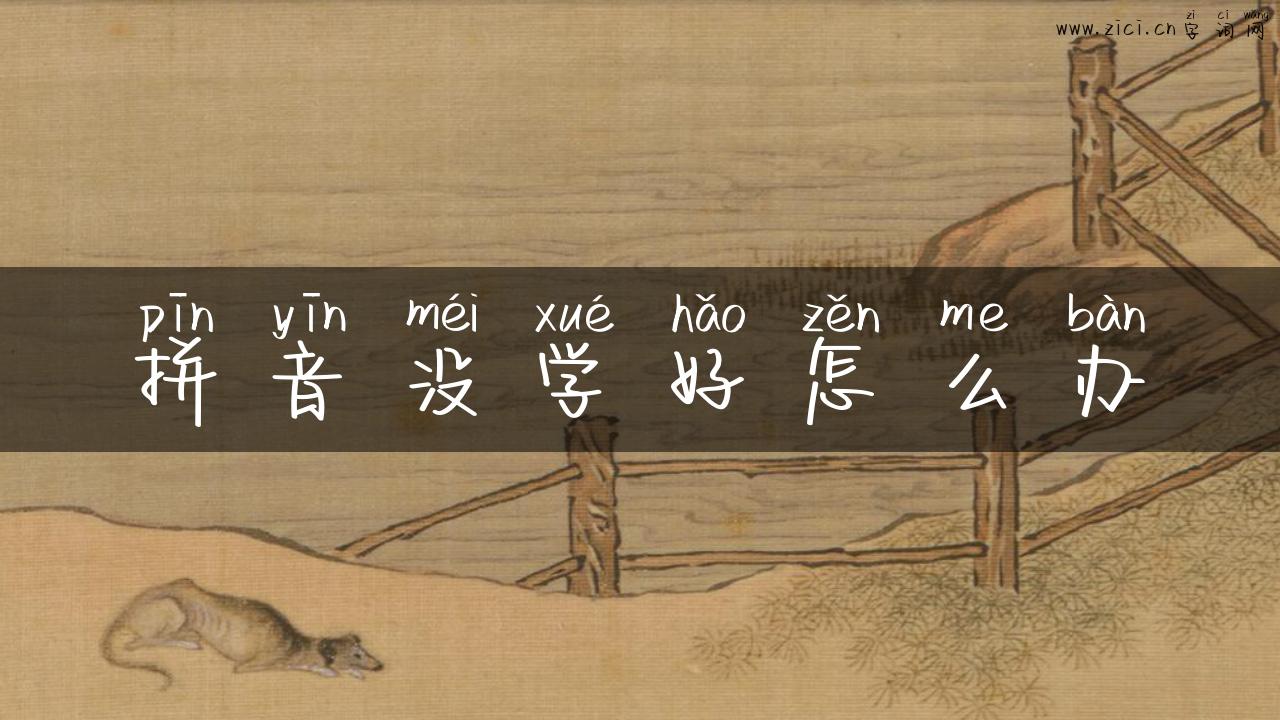 zi ci wang
www.zici.cn字词网
pīn yīn méi xué hǎo zěn me bàn
拼音没学好怎么办